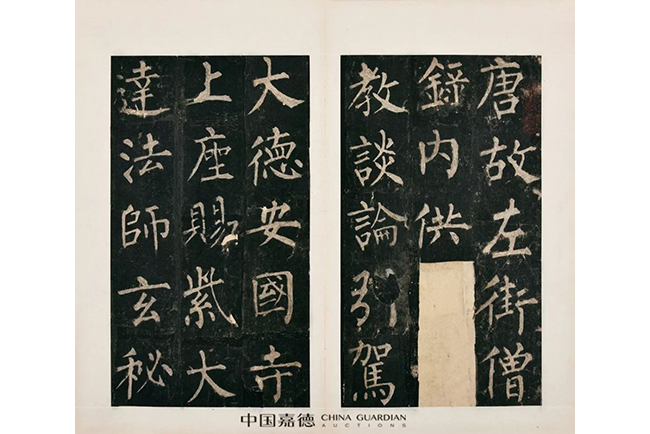 唐故左街僧
錄內供
教談論引駕
大德安國寺
上座賜紫大
達法師玄秘
中国嘉德 CHINA GUARDIAN
AUCTIONS